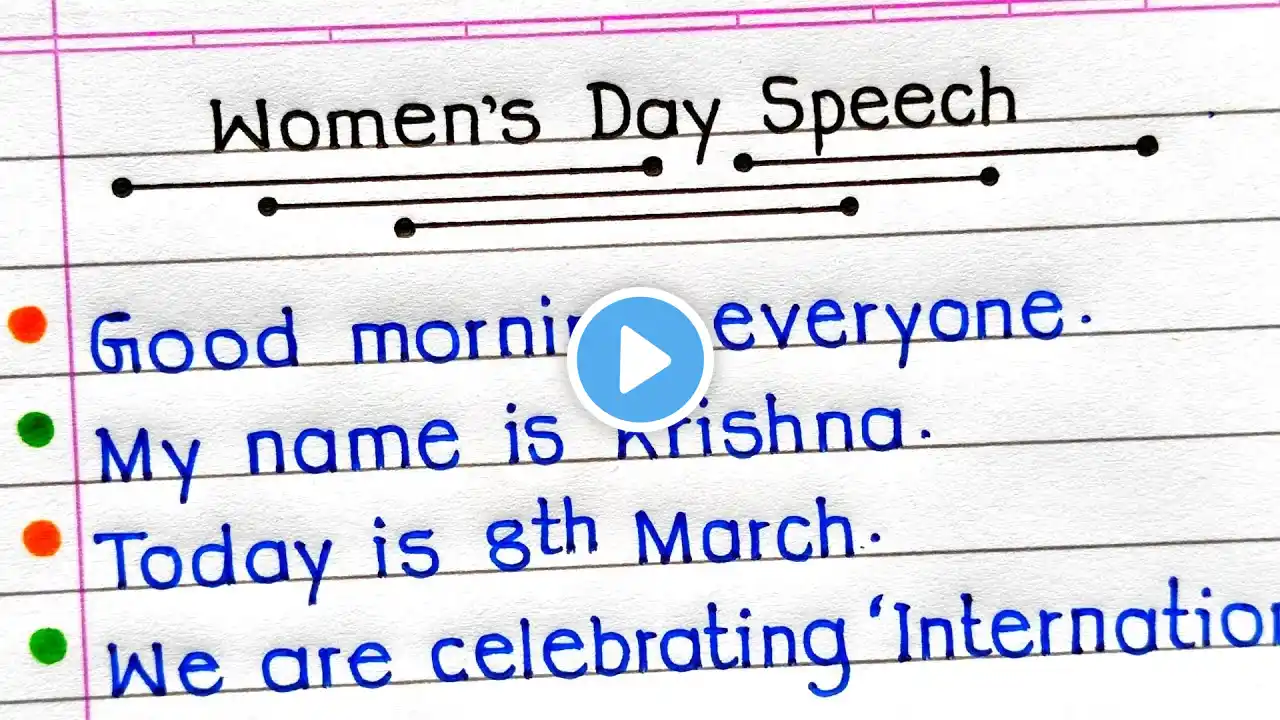 Women's Day Speech
Good everyone.
My name is Krishna.
Today is 8th March.
We are celebrating 'Internation